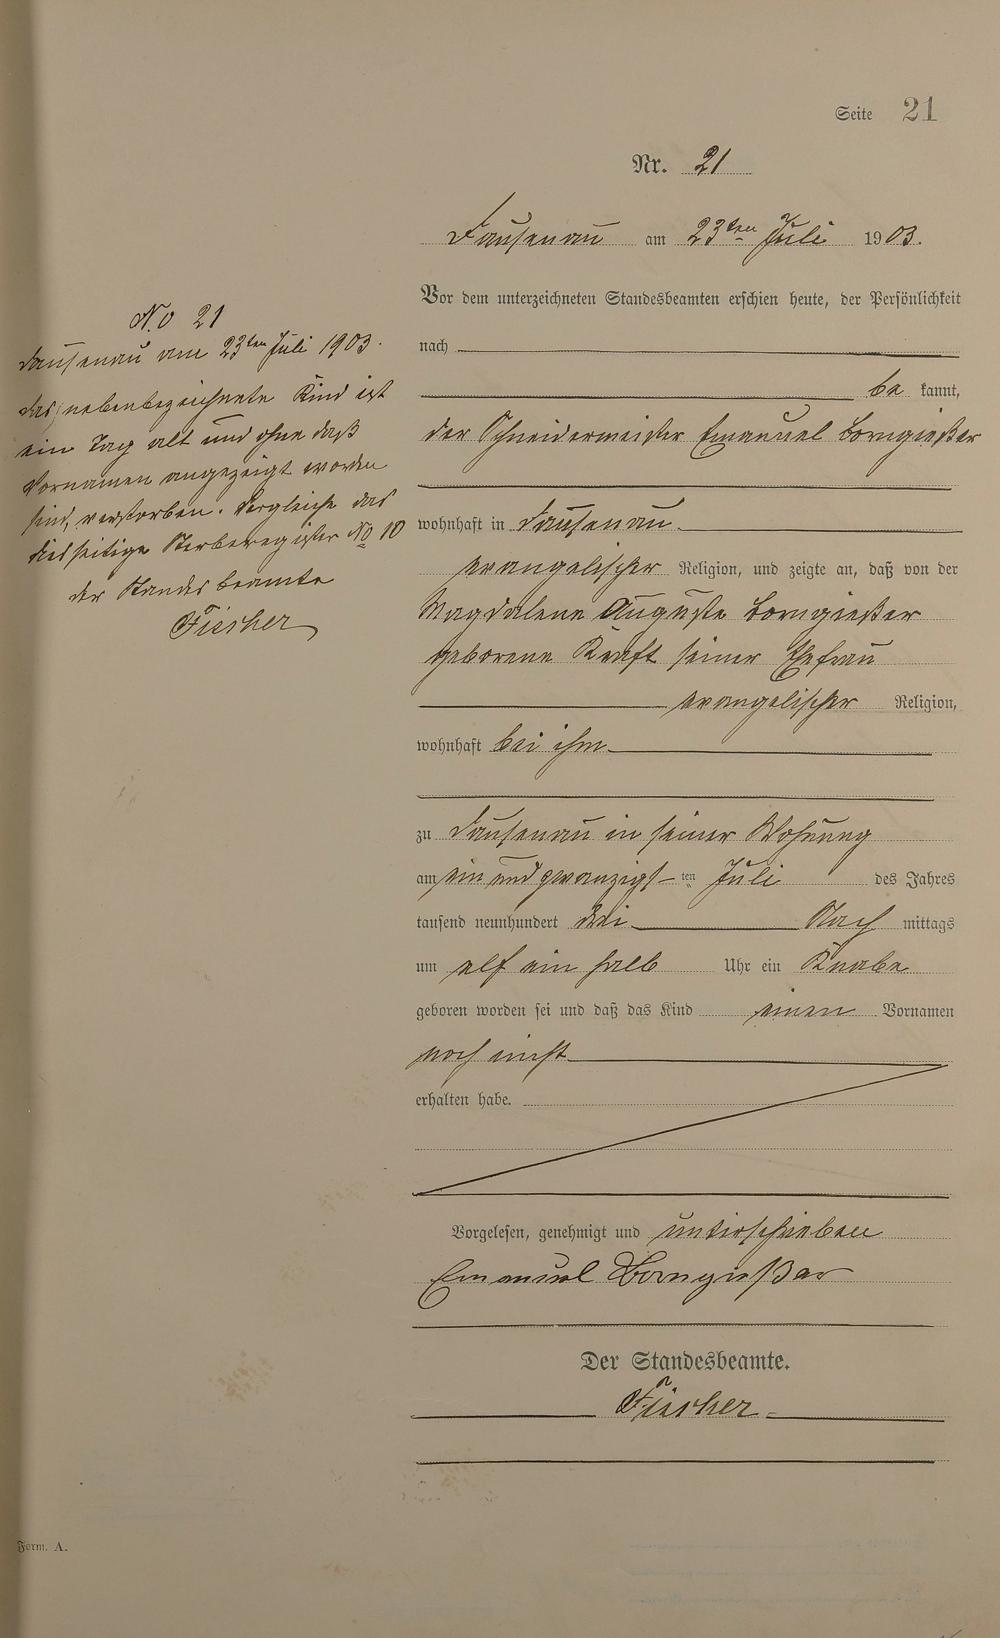 Seite 21
Nr. 21
Dausenau am 23ten Juli 1903.
Vor dem unterzeichneten Standesbeamten erschien heute, der Persönlichkeit
nach
be kannt,
der Schneidermeister Emanuel Borngießer
wohnhaft in Dausenau
evangelischer Religion, und zeigte an, daß von der
Magdalene Auguste Borngießer
geborene Kraft seiner Ehefrau
evangelischer Religion,
wohnhaft bei ihm
zu Dausenau in seiner Wohnung
am ein und zwanzigst ten Juli des Jahres
tausend neunhundert drei Nach mittags
um elf ein halb Uhr ein Knabe
geboren worden sei und daß das Kind einen Vornamen
noch nicht
erhalten habe.
Vorgelesen, genehmigt und unterschrieben
Emanuel Borngießer
Der Standesbeamte.
Fischer
No 21
Dausenau am 23ten Juli 1903.
Das nebenbezeichnete Kind ist
ein Tag alt und ohne daß
Vornamen angezeigt worden
sind, verstorben. Vergleiche das
diesseitige Sterberegister No 10
der Standesbeamte
Fischer
Form. A.